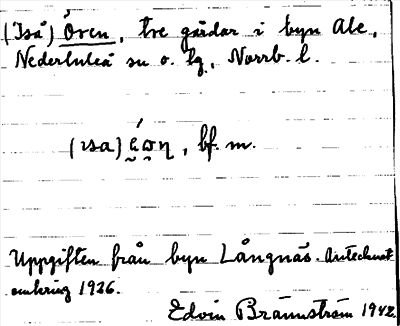 (Iså) Ören, tre gårdar i byn Ale,
Nederluleå sn o. lg, Norrb. l.
bf. m.
Uppgiften från byn Långnäs. Antecknat
omkring 1936.
Edvin Brännström 1942.